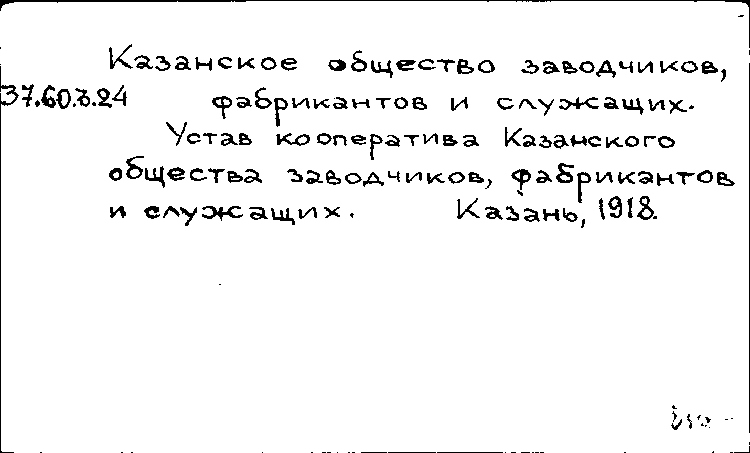 Казанское общество заводчиков,
37.60.3.24 фабрикантов и служащих.
Устав кооператива Казанского
общества заводчиков, фабрикантов
и служащих. Казань, 1918.